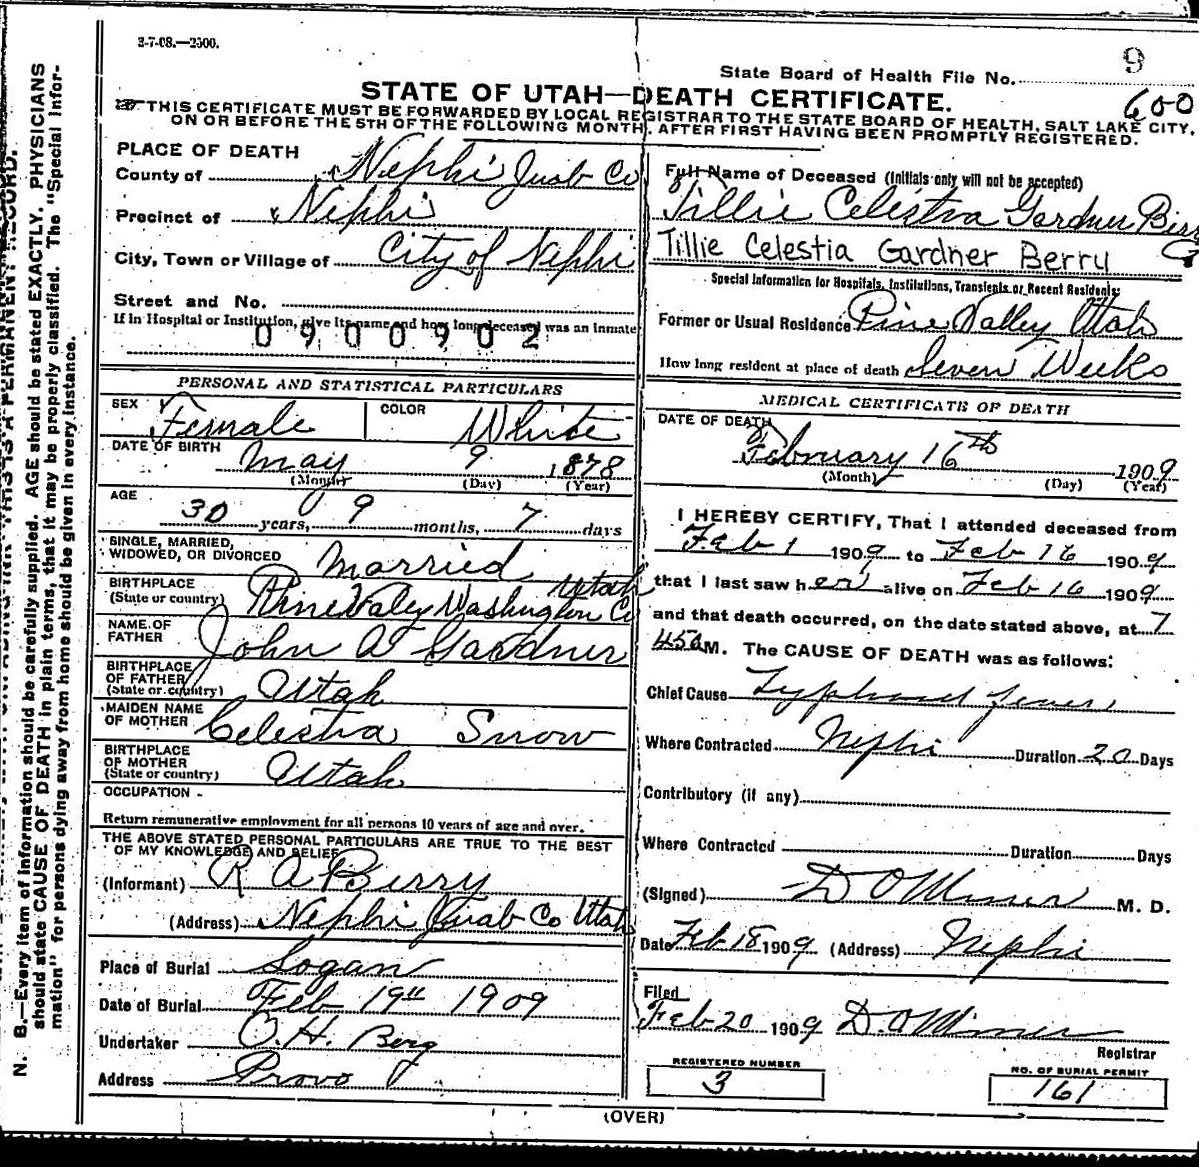 2-7-08.—2500.
9
State Board of Health File No.
STATE OF UTAH—DEATH CERTIFICATE.
600
THIS CERTIFICATE MUST BE FORWARDED BY LOCAL REGISTRAR TO THE STATE BOARD OF HEALTH, SALT LAKE CITY,
ON OR BEFORE THE 5TH OF THE FOLLOWING MONTH, AFTER FIRST HAVING BEEN PROMPTLY REGISTERED.
N. B.—Every item of information should be carefully supplied. AGE should be stated EXACTLY. PHYSICIANS
should state CAUSE OF DEATH in plain terms, that it may be properly classified. The "Special Infor-
mation" for persons dying away from home should be given in every instance.
PLACE OF DEATH
County of Nephi Juab Co
Precinct of Nephi
City, Town or Village of City of Nephi
Street and No.
If in Hospital or Institution, give its name and how long deceased was an inmate
0900902
PERSONAL AND STATISTICAL PARTICULARS
SEX Female COLOR White
DATE OF BIRTH May 9 1878
(Month) (Day) (Year)
AGE
30 years, 9 months, 7 days
SINGLE, MARRIED,
WIDOWED, OR DIVORCED Married
BIRTHPLACE Utah
(State or country) Pine Valey Washington Co
NAME OF
FATHER John A Gardner
BIRTHPLACE
OF FATHER
(State or country) Utah
MAIDEN NAME
OF MOTHER Celestia Snow
BIRTHPLACE
OF MOTHER
(State or country) Utah
OCCUPATION -
Return remunerative employment for all persons 10 years of age and over.
THE ABOVE STATED PERSONAL PARTICULARS ARE TRUE TO THE BEST
OF MY KNOWLEDGE AND BELIEF
(Informant) R A Berry
(Address) Nephi Juab Co Utah
Place of Burial Logan
Date of Burial Feb 19th 1909
Undertaker O. H. Berg
Address Provo
Full Name of Deceased (Initials only will not be accepted)
Tillie Celestia Gardner Berry
Tillie Celestia Gardner Berry
Special Information for Hospitals, Institutions, Transients or Recent Residents:
Former or Usual Residence Pine Valley Utah
How long resident at place of death Seven Weeks
MEDICAL CERTIFICATE OF DEATH
DATE OF DEATH
February 16th 1909
(Month) (Day) (Year)
I HEREBY CERTIFY, That I attended deceased from
Feb 1 1909 to Feb 16 1909
that I last saw her alive on Feb 16 1909
and that death occurred, on the date stated above, at 7
45 a M. The CAUSE OF DEATH was as follows:
Chief Cause Typhoid fever
Where Contracted Nephi Duration 20 Days
Contributory (if any)
Where Contracted Duration Days
(Signed) D O Miner M. D.
Date Feb 18 1909 (Address) Nephi
Filed
Feb 20 1909 D. O Miner
Registrar
REGISTERED NUMBER
3
NO. OF BURIAL PERMIT
161
(OVER)